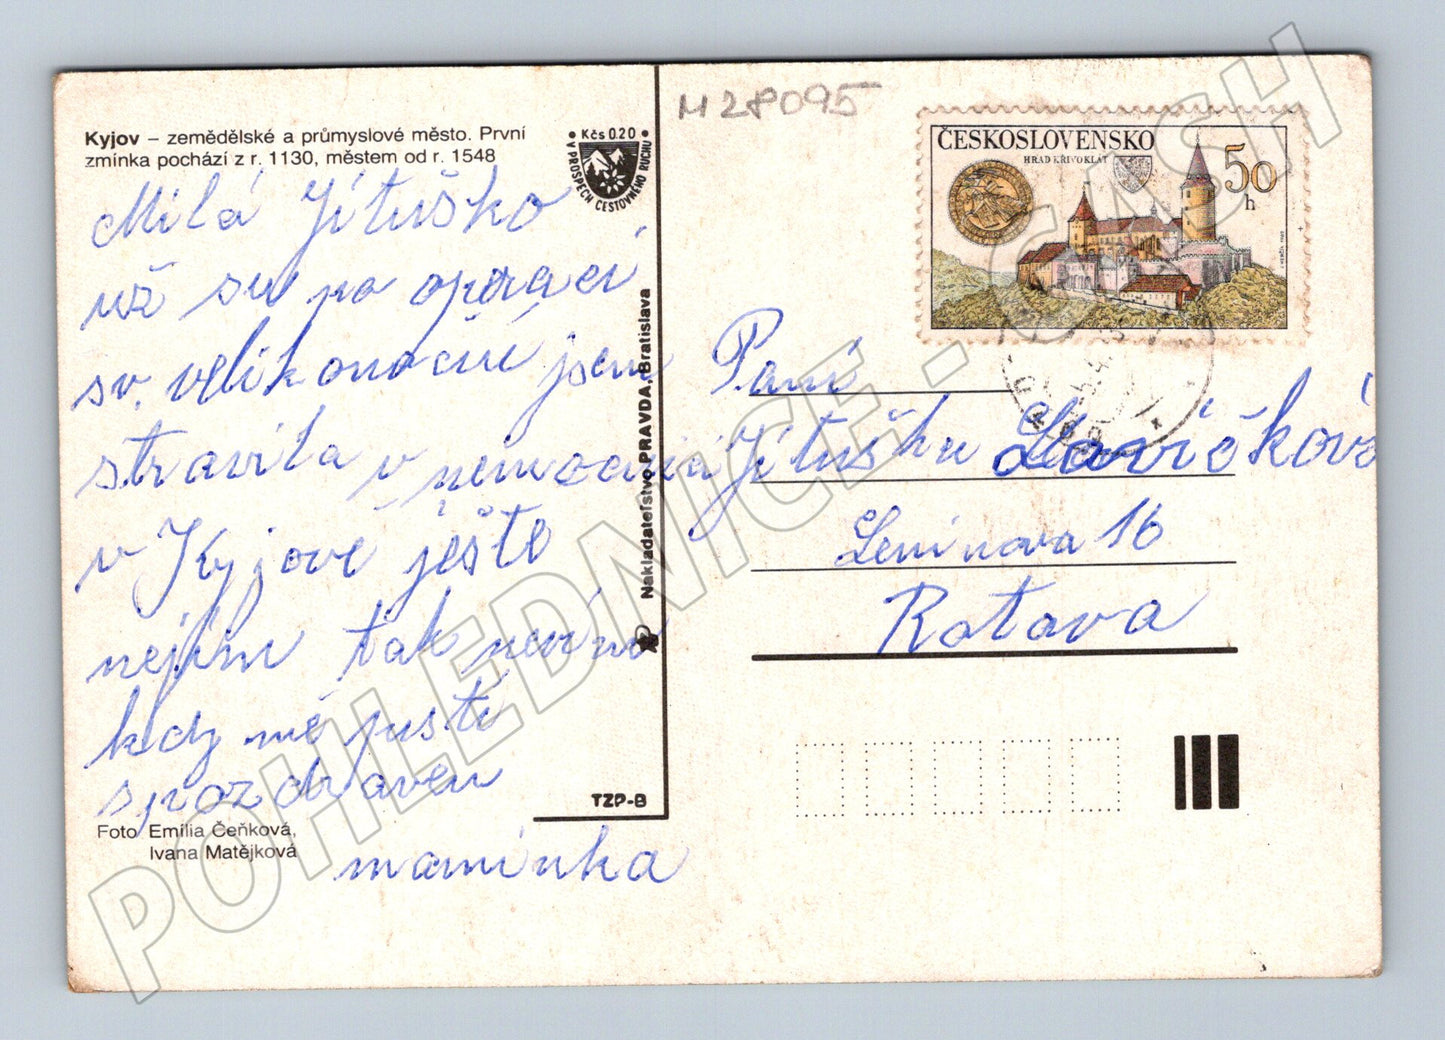 Kyjov – zemědělské a průmyslové město. První
zmínka pochází z r. 1130, městem od r. 1548
• Kčs 0.20 •
V PROSPĚCH CESTOVNÉHO RUCHU
M28095
ČESKOSLOVENSKO
HRAD KŘIVOKLÁT
50
h
Milá Jituško,
už su na opraci
sv. velikonoční jsem
stravila v nemocnici
v Kyjově ještě
nejím tak nevím
kdy mě pustí
spozdraven
maminka
Foto Emília Čeňková,
Ivana Matějková
TZP-B
Nakladateľstvo PRAVDA, Bratislava
Paní
Jitušku Slavíčková
Leninova 16
Rotava
POHLEDNICE - CASH